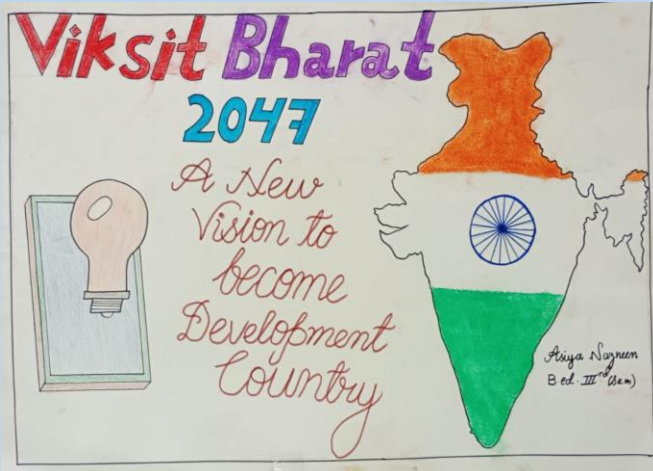 Viksit Bharat
2047
A New
Vision to
become
Development
Country
Asiya Nazneen
B.ed. IIIrd (Sem)